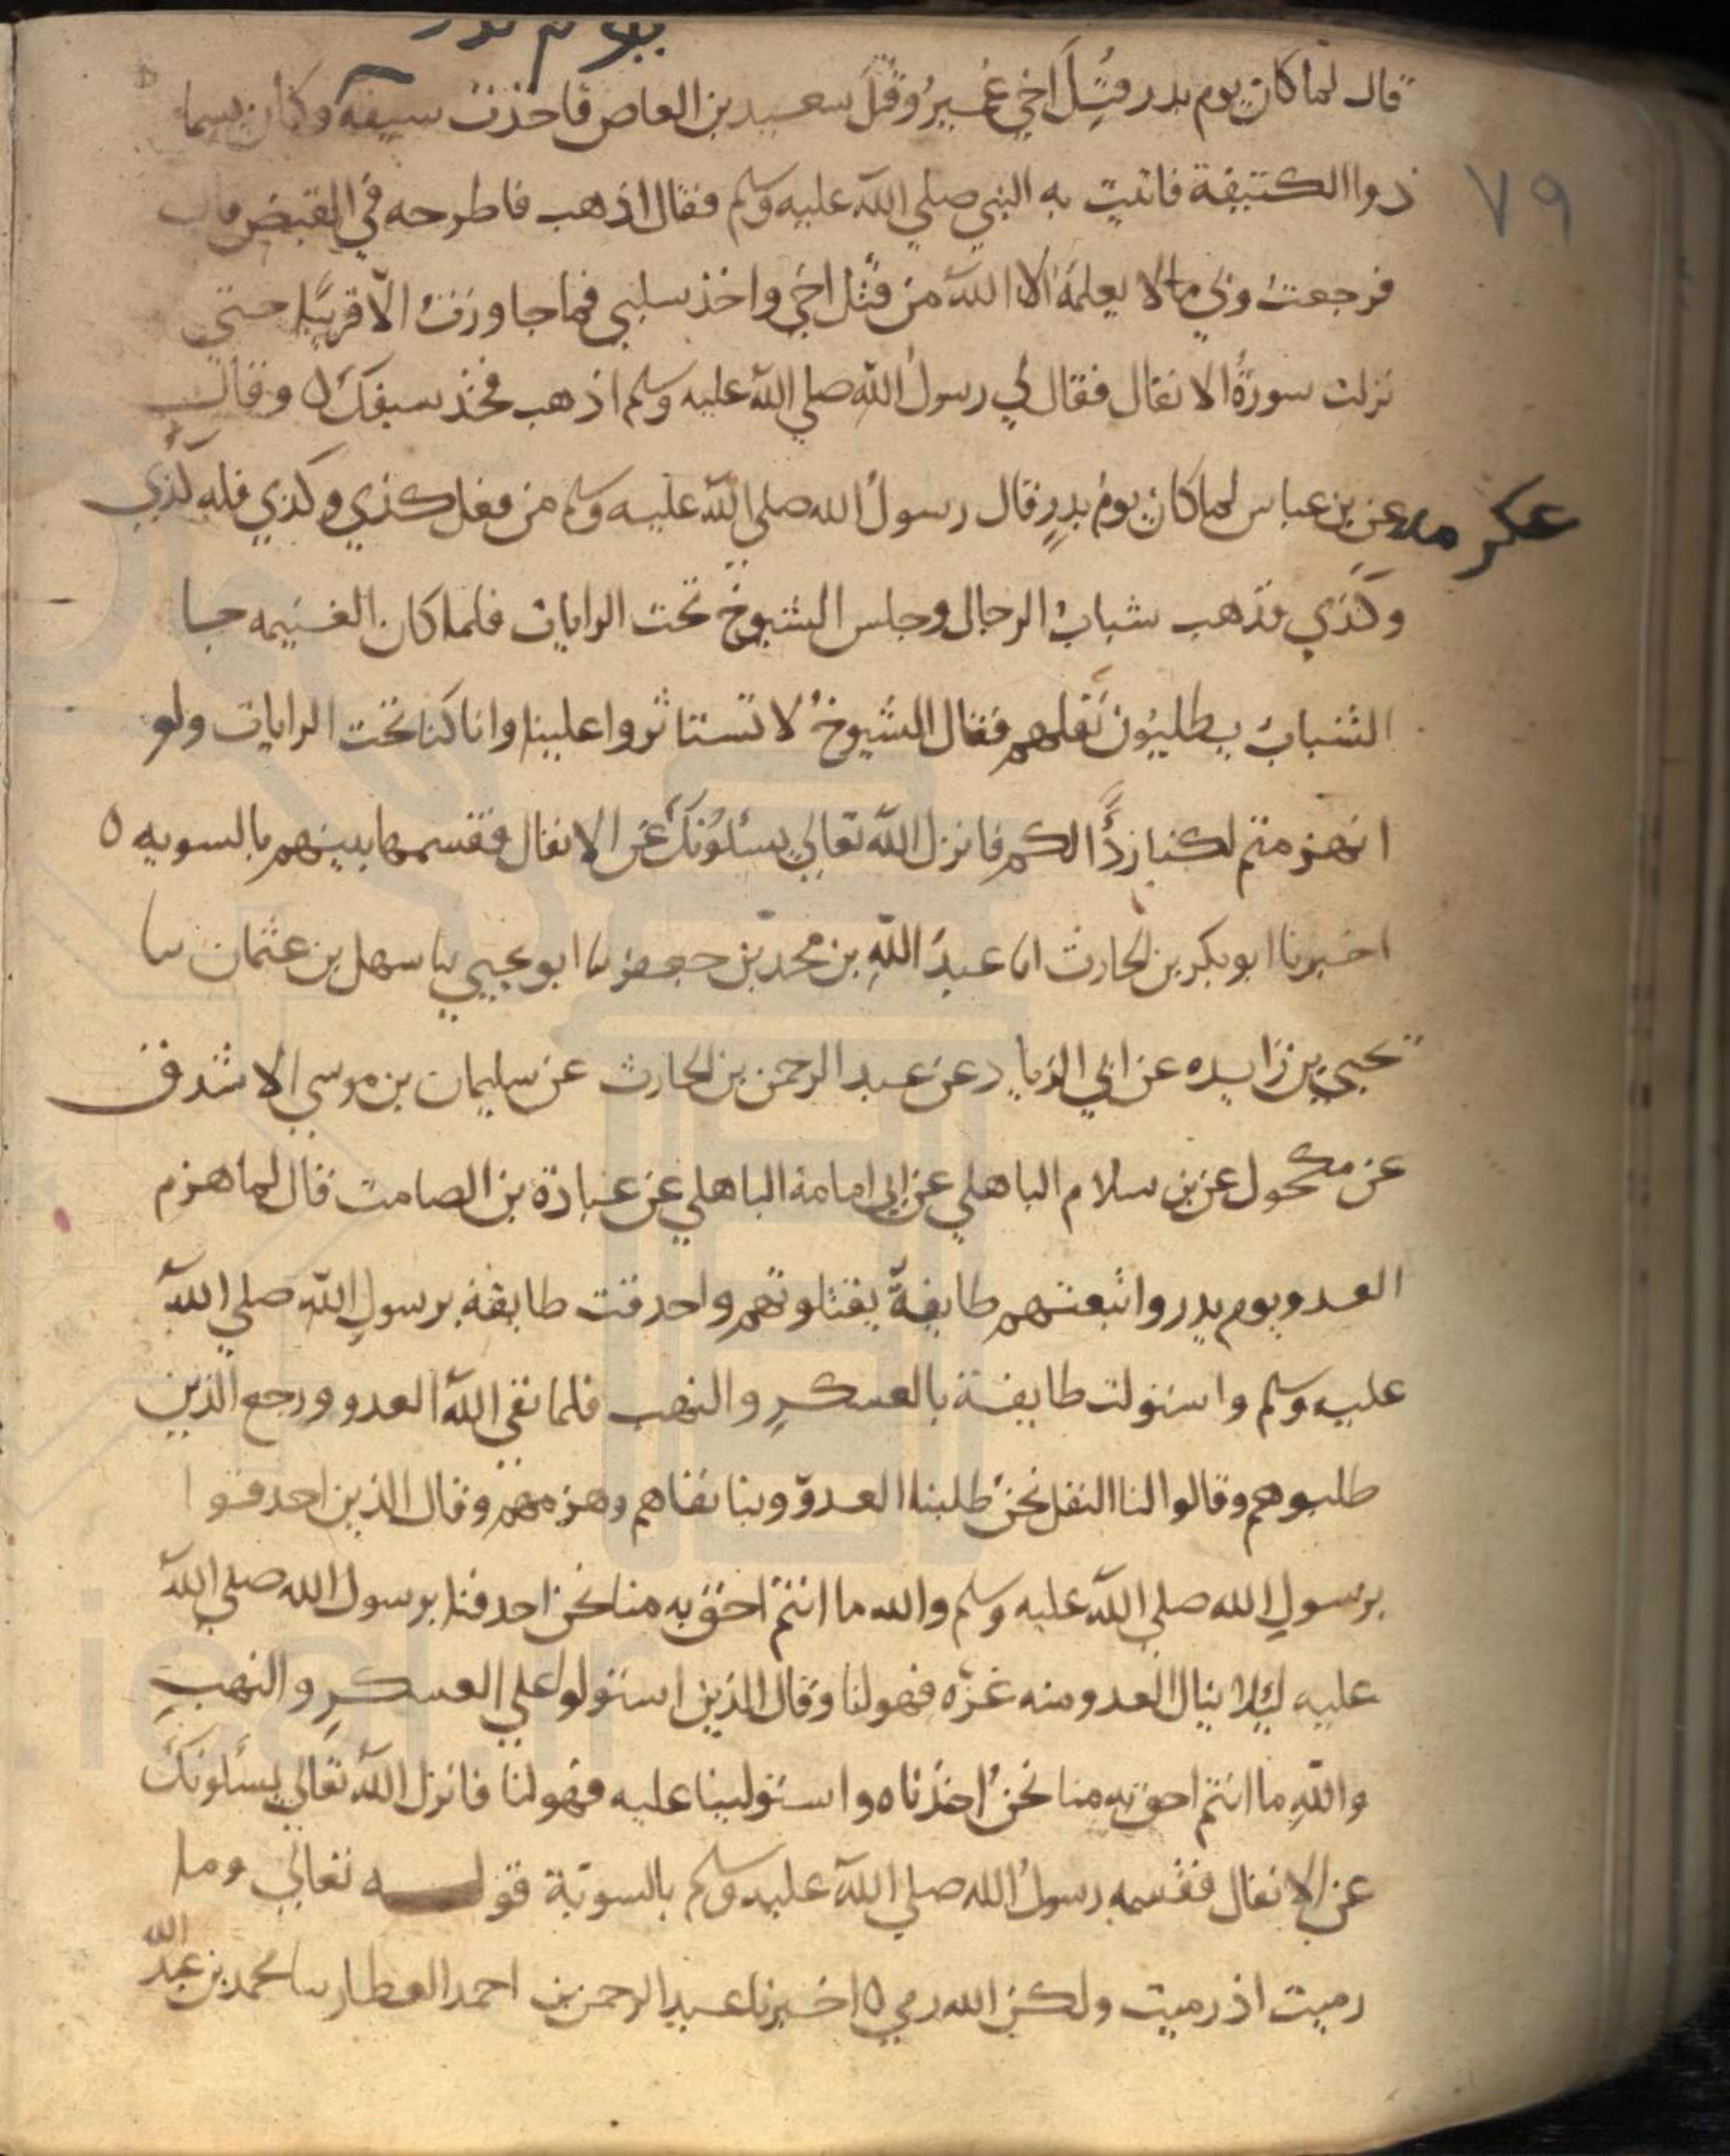 يوم بدر
قال لما كان يوم بدر قتل اخي عمير وقتل سعيد بن العاص فاخذت سيفه وكان يسما
٧٩
ذوا الكتيفة فاتيت به النبي صلي الله عليه وسلم فقال اذهب فاطرحه في القبض قال
فرجعت وبي ما لا يعلمه الا الله من قتل اخي واخذ سلبي فما جاوزت الا قريبا حتي
نزلت سورة الانفال فقال لي رسول الله صلي الله عليه وسلم اذهب فخذ سيفك ٥ وقال
عكرمه عن بن عباس لما كان يوم بدر قال رسول الله صلي الله عليه وسلم من فعل كذي وكذي فله كذي
وكذي فذهب شباب الرجال وجلس الشيوخ تحت الرايات فلما كان الغنيمه جا
الشباب يطلبون نفلهم فقال الشيوخ لا تستاثروا علينا وانا كنا تحت الرايات ولو
انهزمتم لكنا ردًّا لكم فانزل الله تعالي يسئلونك عن الانفال فقسمها بينهم بالسويه ٥
اخبرنا ابو بكر بن الحارث انا عبد الله بن محمد بن جعفر نا ابو يحيي نا سهل بن عثمان نا
يحيي بن زايده عن ابي الزناد عن عبد الرحمن بن الحارث عن سليمان بن موسي الاشدق
عن مكحول عن بن سلام الباهلي عن ابي امامة الباهلي عن عبادة بن الصامت قال لما هزم
العدو يوم بدر واتبعتهم طايفة يقتلونهم واحدقت طايفة برسول الله صلي الله
عليه وسلم واستولت طايفة بالعسكر والنهب فلما نفي الله العدو ورجع الذين
طلبوهم وقالوا لنا النفل نحن طلبنا العدو وبنا نفاهم وهزمهم وقال الذين احدقوا
برسول الله صلي الله عليه وسلم والله ما انتم احق به منا نحن احدقنا برسول الله صلي الله
عليه ليلا ينال العدو منه غرة فهو لنا وقال الذين استولوا علي العسكر والنهب
والله ما انتم احق به منا نحن اخذناه واستولينا عليه فهو لنا فانزل الله تعالي يسئلونك
عن الانفال فقسمه رسول الله صلي الله عليه وسلم بالسوية قوله تعالي وما
رميت اذ رميت ولكن الله رمي ٥ اخبرنا عبد الرحمن بن احمد العطار نا محمد بن عبد الله